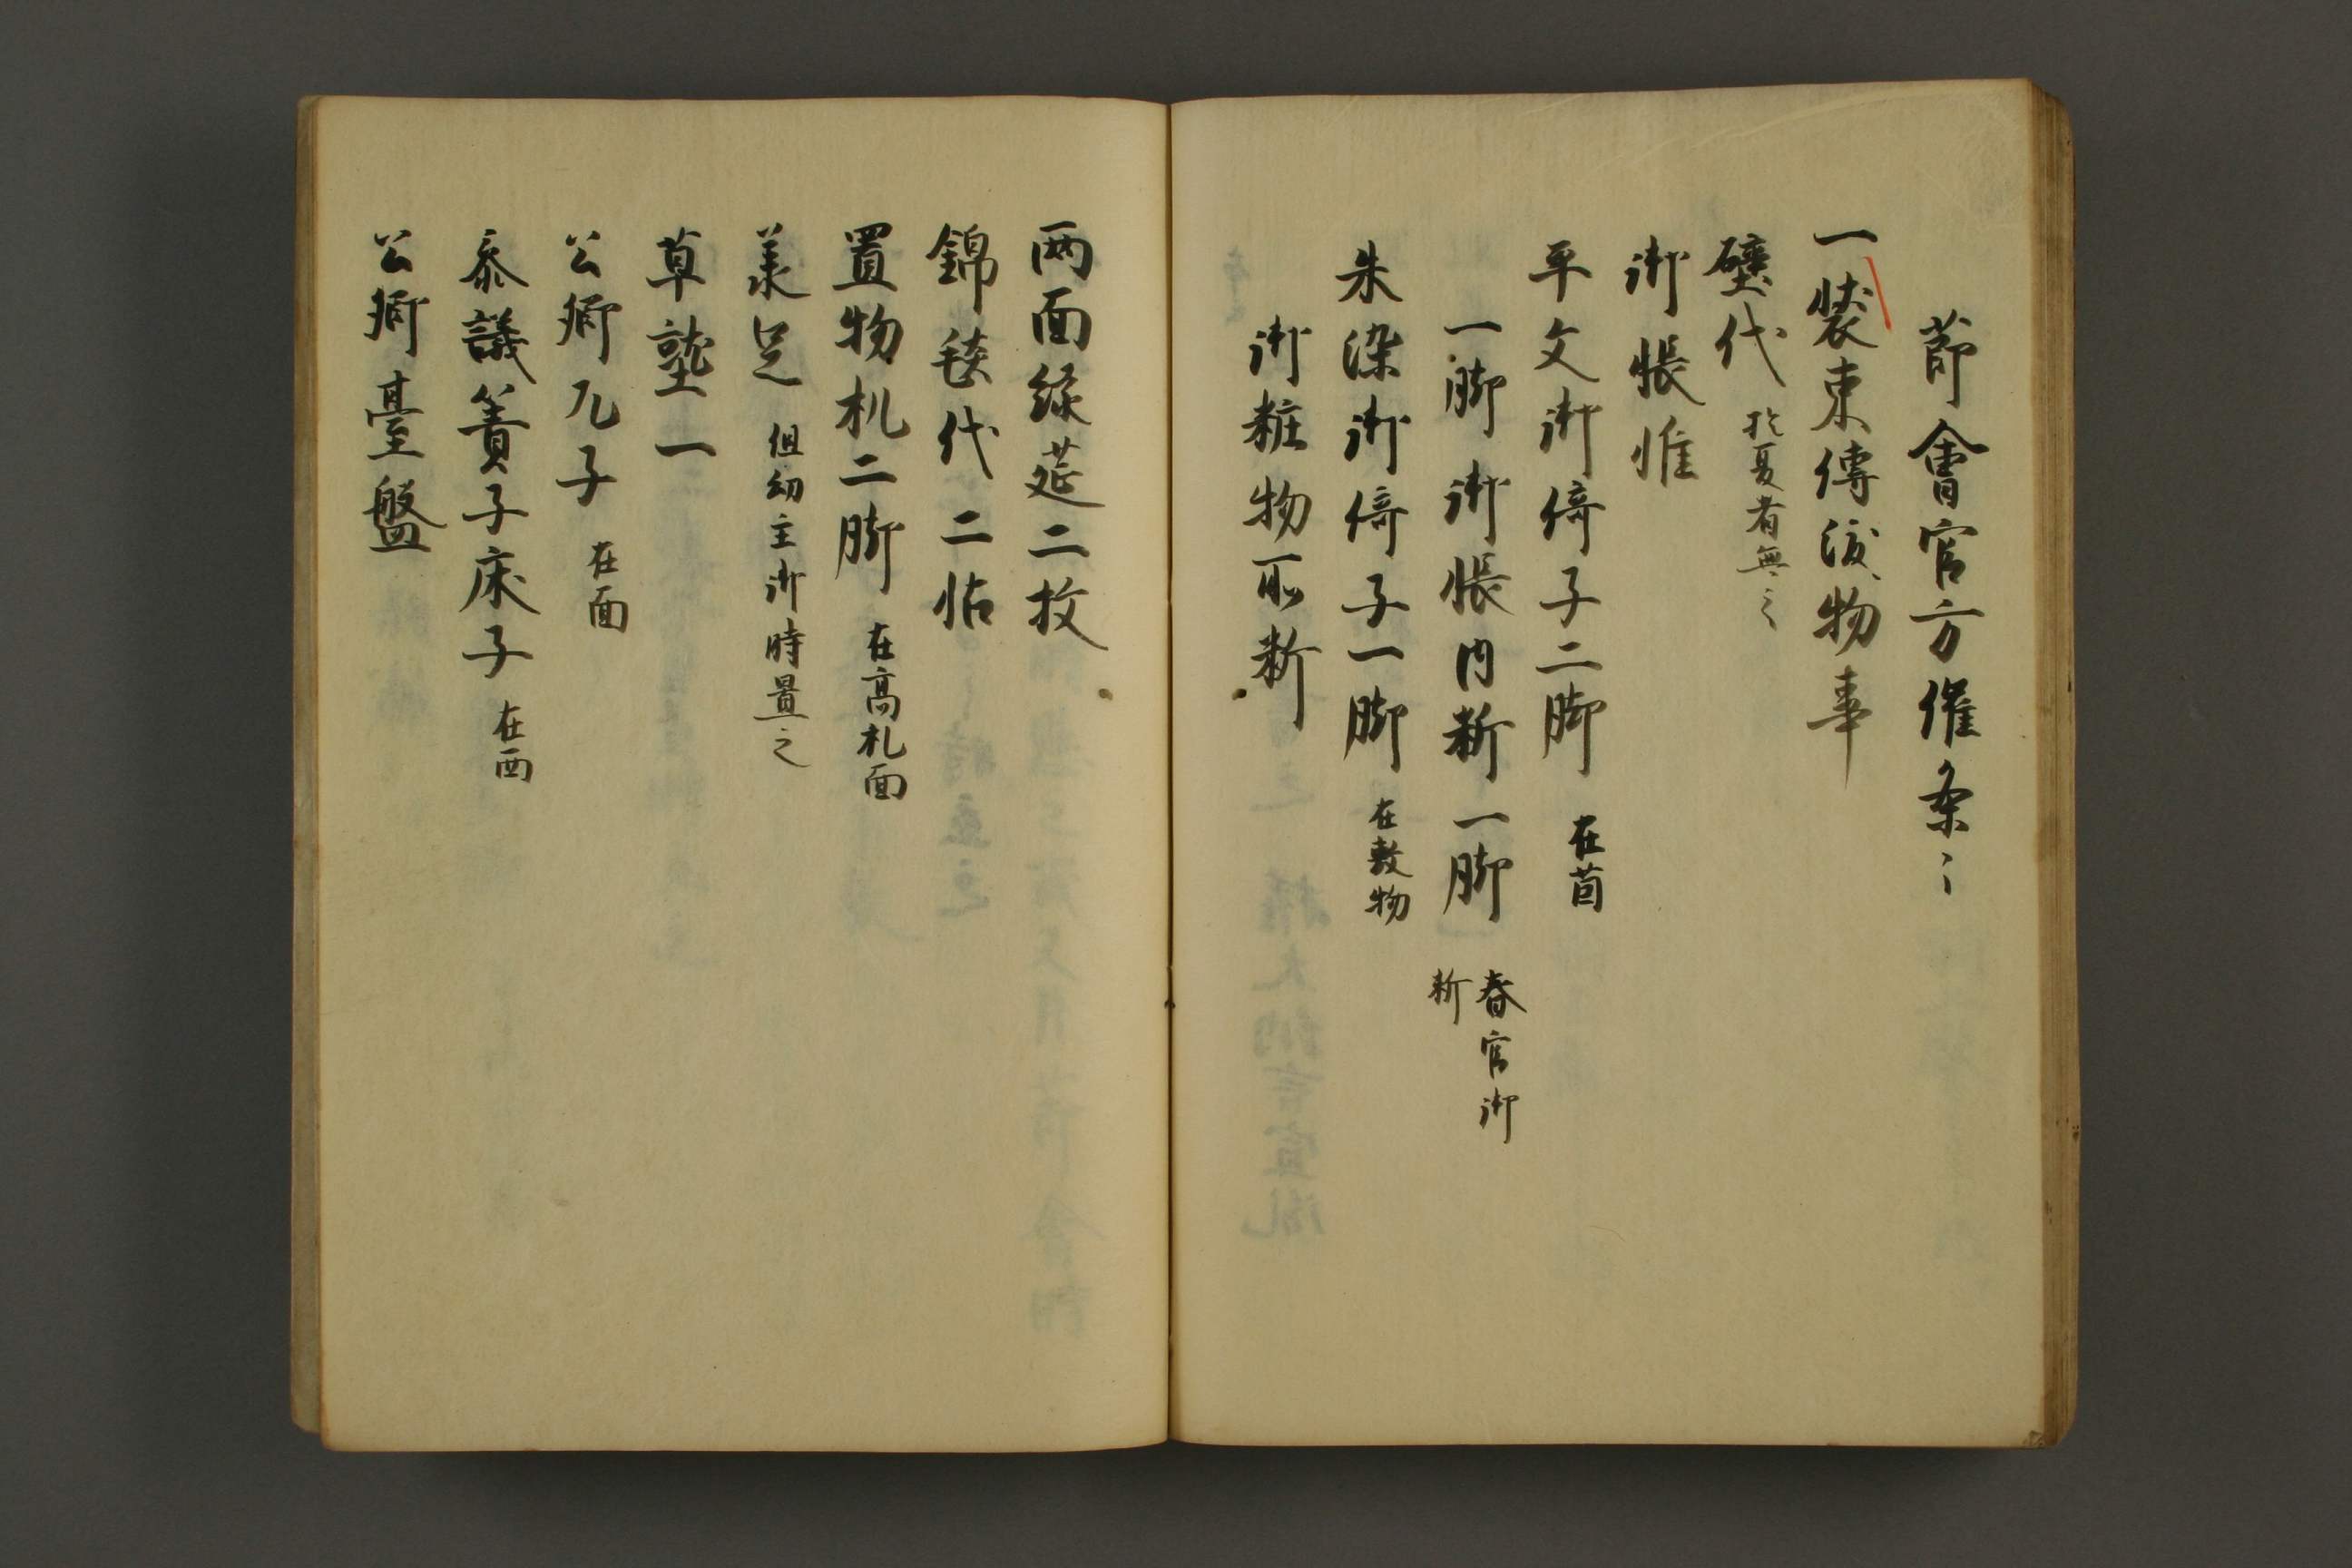 節會官方催条〻
一裝束傳渡物事
壁代 於夏者無之
御帳帷
平文御倚子二脚 在茵
一脚御帳内料一脚 春宮御料
朱染御倚子一脚 在敷物
御粧物所料
兩面綠莚二枚
錦毯代二帖
置物机二脚 在高札面
兼足 但幼主御時置之
草墪一
公卿兀子 在面
叅議簀子床子 在面
公卿臺盤